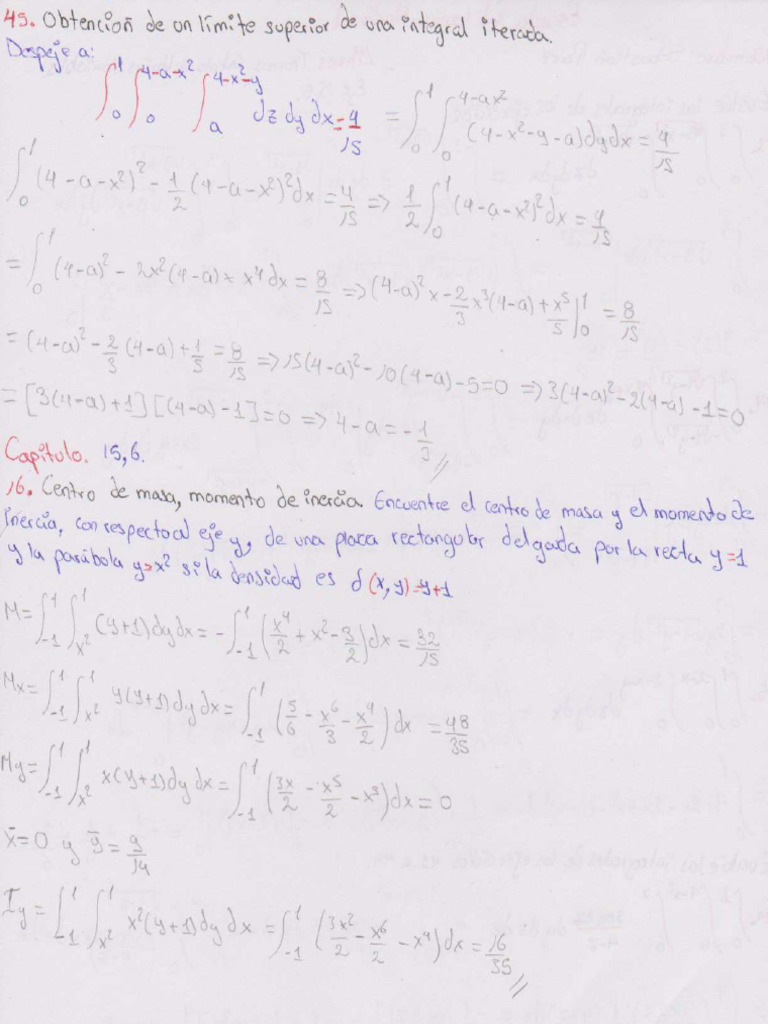 45. Obtencion de un límite superior de una integral iterada.
Despeje a:
∫₀¹ ∫₀^(4-a-x²) ∫ₐ^(4-x²-y) dz dy dx = 4/15 = ∫₀¹ ∫₀^(4-ax²) (4-x²-y-a)dydx = 4/15
∫₀¹ (4-a-x²)² - 1/2 (4-a-x²)² dx = 4/15 => 1/2 ∫₀¹ (4-a-x²)² dx = 4/15
= ∫₀¹ (4-a)² - 2x²(4-a) + x⁴ dx = 8/15 => (4-a)² x - 2/3 x³(4-a) + x⁵/5 |₀¹ = 8/15
= (4-a)² - 2/3 (4-a) + 1/5 = 8/15 => 15(4-a)² - 10(4-a) - 5 = 0 => 3(4-a)² - 2(4-a) - 1 = 0
= [3(4-a)+1] [(4-a)-1] = 0 => 4-a = -1/3 //
Capitulo. 15,6.
16. Centro de masa, momento de inercia. Encuentre el centro de masa y el momento de
inercia, con respecto al eje y, de una placa rectangular delgada por la recta y=1
y la parábola y=x² si la densidad es δ(x,y)=y+1
M= ∫₋₁¹ ∫ₓ²¹ (y+1)dy dx = - ∫₋₁¹ (x⁴/2 + x² - 3/2) dx = 32/15
Mx= ∫₋₁¹ ∫ₓ²¹ y(y+1)dy dx = ∫₋₁¹ (5/6 - x⁶/3 - x⁴/2) dx = 48/35
My= ∫₋₁¹ ∫ₓ²¹ x(y+1)dy dx = ∫₋₁¹ (3x/2 - x⁵/2 - x³) dx = 0
x̄=0 y ȳ= 9/14
Iy = ∫₋₁¹ ∫ₓ²¹ x²(y+1)dy dx = ∫₋₁¹ (3x²/2 - x⁶/2 - x⁴) dx = 16/35 //